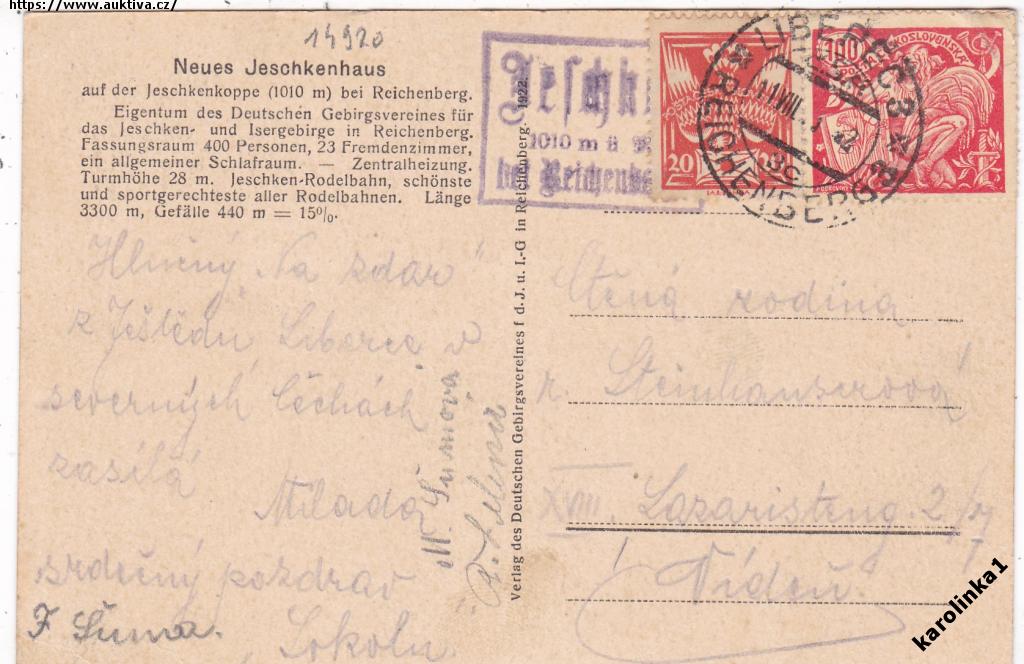 https://www.auktiva.cz/
14920
Neues Jeschkenhaus
auf der Jeschkenkoppe (1010 m) bei Reichenberg.
Eigentum des Deutschen Gebirgsvereines für
das Jeschken- und Isergebirge in Reichenberg.
Fassungsraum 400 Personen, 23 Fremdenzimmer,
ein allgemeiner Schlafraum. — Zentralheizung.
Turmhöhe 28 m. Jeschken-Rodelbahn, schönste
und sportgerechteste aller Rodelbahnen. Länge
3300 m, Gefälle 440 m = 15%.
1010 m ü
20
100
LIBEREC 3
REICHENBERG 3
Verlag des Deutschen Gebirgsvereines f d. J. u. I.-G in Reichenberg. 1922.
"Na zdar"
z Ještědu Liberce v
severných Čechách
zasílá
Milada
srdečný pozdrav
F Šuma.
Sokolu
M. Šumova
Ctěná rodina
XVIII. Lazaristeng. 2/
Vídeň
karolinka1